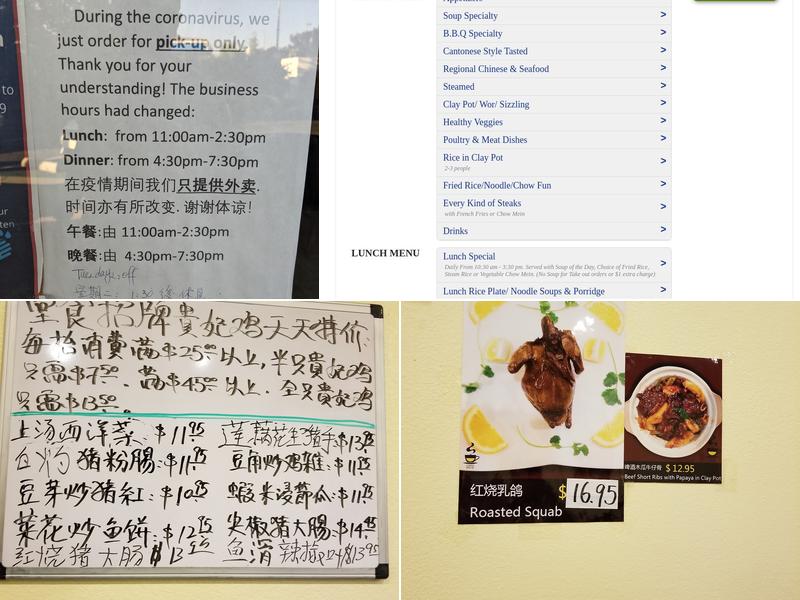 During the coronavirus, we
just order for pick-up only.
Thank you for your
understanding! The business
hours had changed:
Lunch: from 11:00am-2:30pm
Dinner: from 4:30pm-7:30pm
在疫情期间我们只提供外卖.
时间亦有所改变. 谢谢体谅!
午餐:由 11:00am-2:30pm
晚餐:由 4:30pm-7:30pm
Tuesday: off
to
9
ur
ten
Soup Specialty >
B.B.Q Specialty >
Cantonese Style Tasted >
Regional Chinese & Seafood >
Steamed >
Clay Pot/ Wor/ Sizzling >
Healthy Veggies >
Poultry & Meat Dishes >
Rice in Clay Pot >
2-3 people
Fried Rice/Noodle/Chow Fun >
Every Kind of Steaks >
with French Fries or Chow Mein
Drinks >
LUNCH MENU
Lunch Special >
Daily From 10:30 am - 3:30 pm. Served with Soup of the Day, Choice of Fried Rice,
Steam Rice or Vegetable Chow Mein. (No Soup for Take out orders or $1 extra charge)
Lunch Rice Plate/ Noodle Soups & Porridge >
堂食招牌貴妃鸡天天特价:
每枱消費滿$25.00以上,半只貴妃鸡
只需$7.50. 滿$45.00以上. 全只貴妃鸡
只需$13.50.
上汤西洋菜: $11.95 莲藕花生猪手:$13.95
白灼猪粉腸:$11.95 豆角炒鸡雜:$11.95
豆芽炒猪紅:$10.95 蝦米浸節瓜:$11.95
菜花炒鱼饼:$12.95 尖椒猪大腸:$14.95
红烧猪大肠 $13.95 鱼滑辣椒 $13.95
红烧乳鸽 $16.95
Roasted Squab
啤酒木瓜牛仔骨 $12.95
Beef Short Ribs with Papaya in Clay Pot